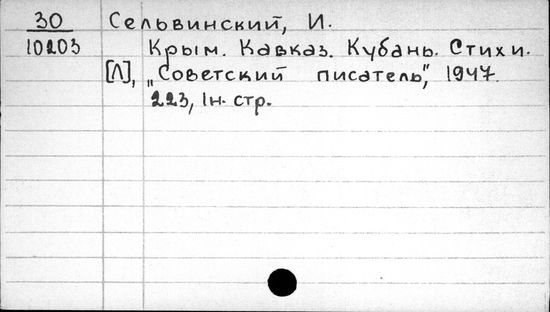 30 Сельвинский, И.
10203 Крым. Кавказ. Кубань. Стихи.
[Л], „Советский писатель", 1947.
223, 1н. стр.